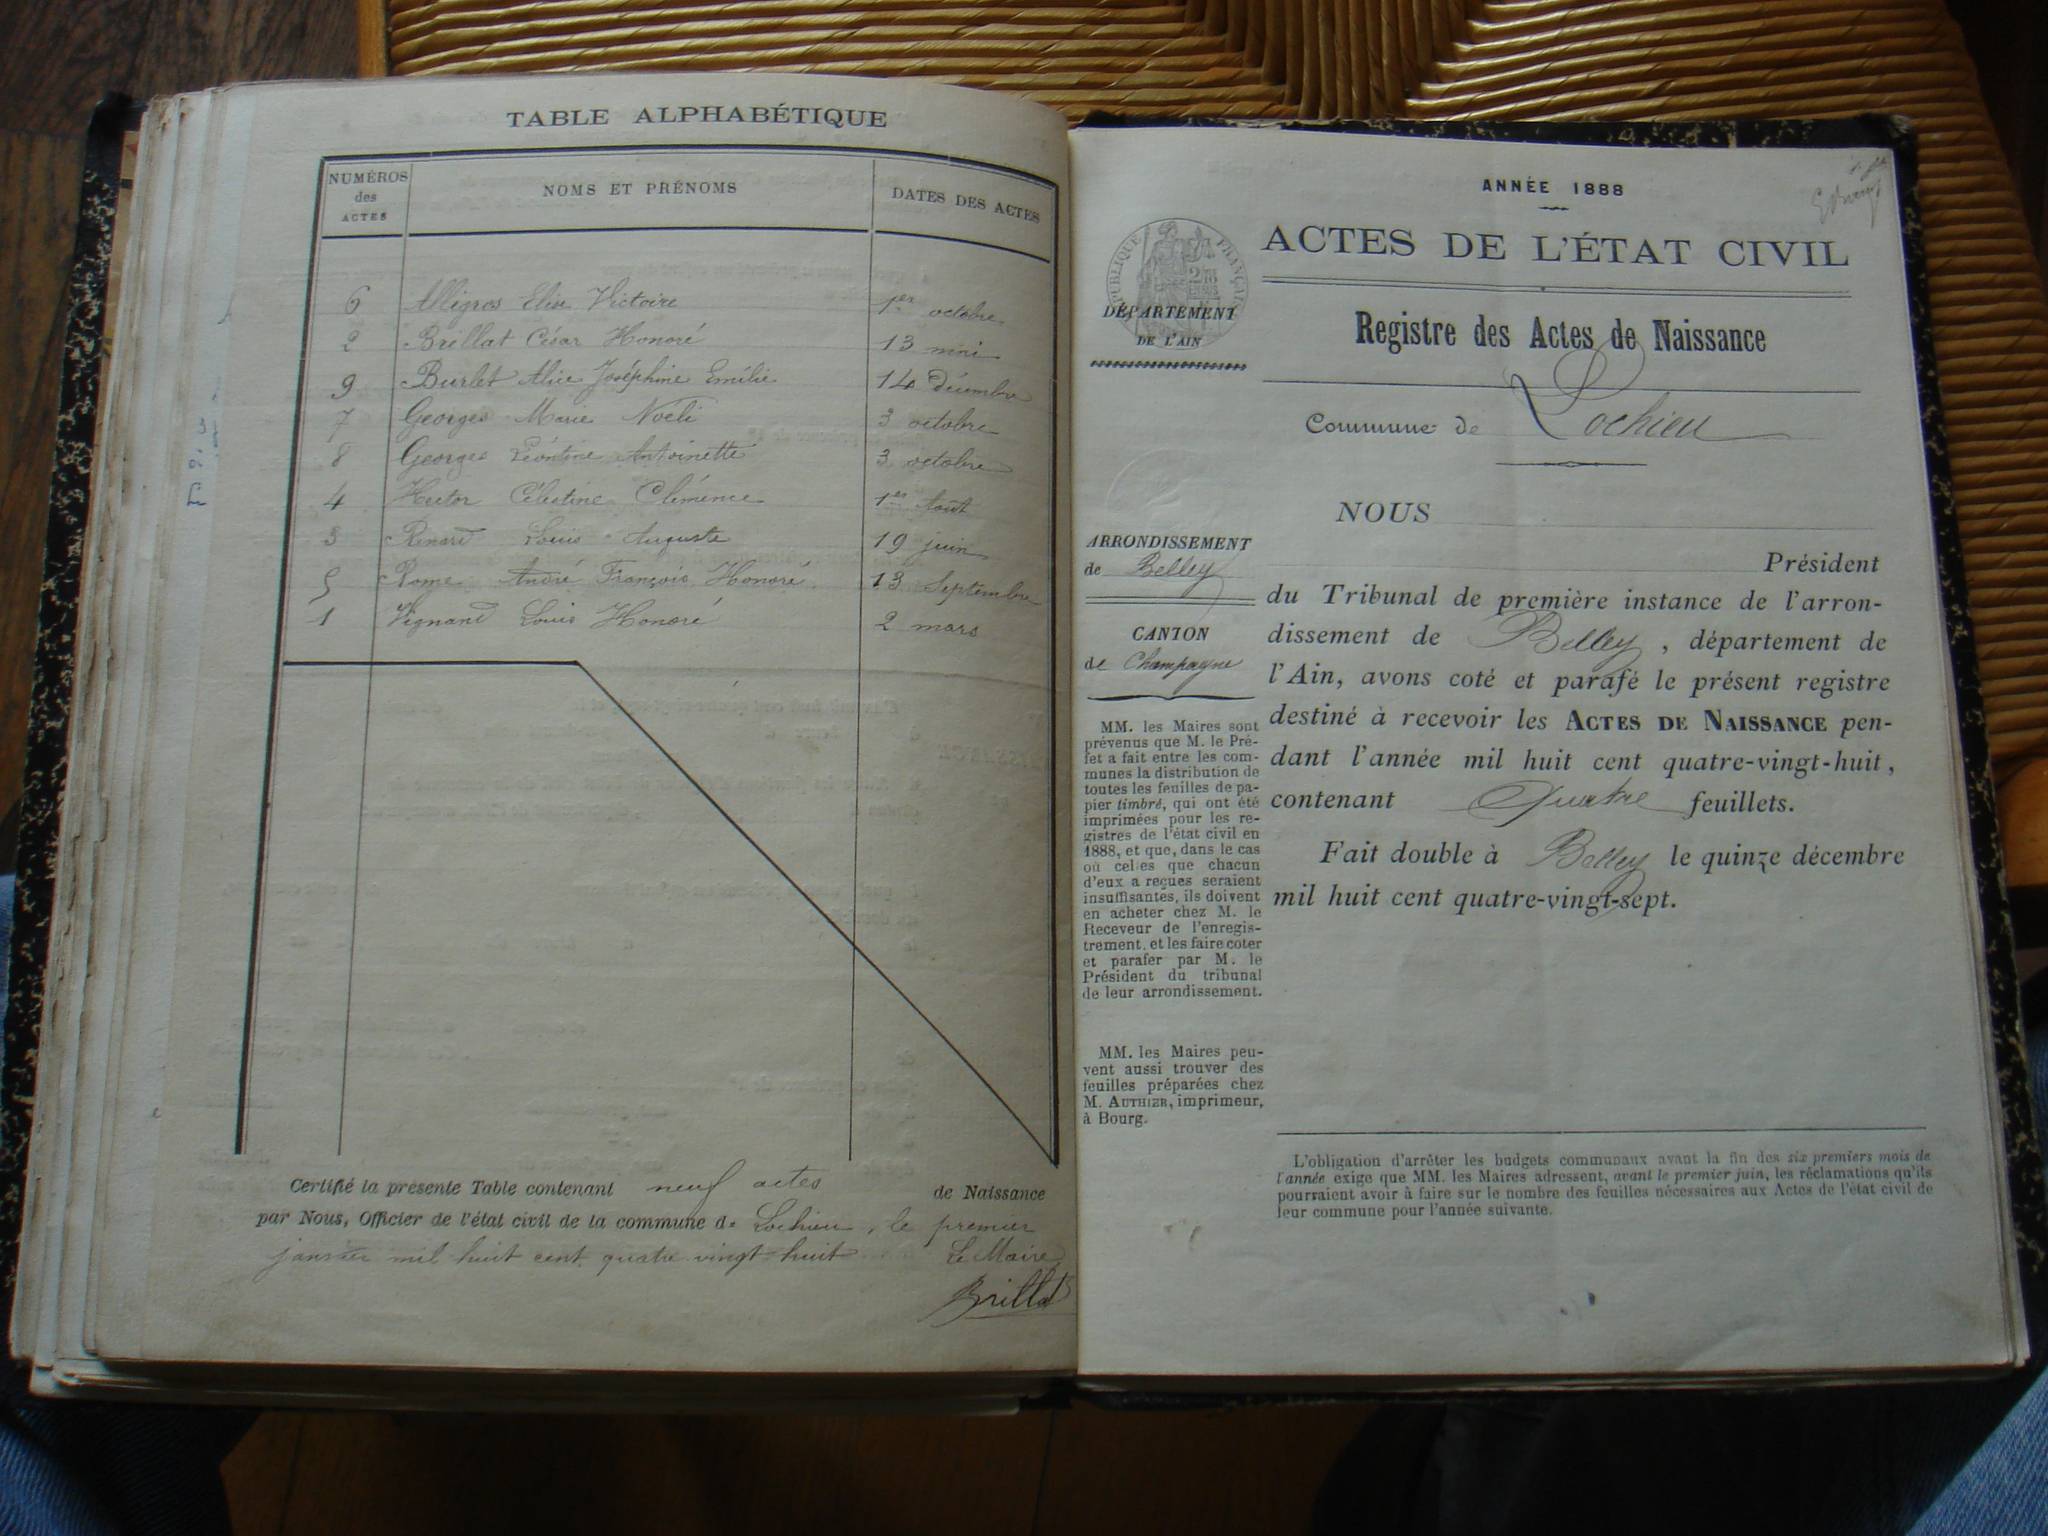 TABLE ALPHABÉTIQUE
NUMÉROS des ACTES NOMS ET PRÉNOMS DATES DES ACTES
6 Alligros Elise Victoire 1er octobre
2 Brillat César Honoré 13 mai
9 Burlet Alice Joséphine Emélie 14 décembre
7 Georges Marie Noéli 3 octobre
8 Georges Léontine Antoinette 3 octobre
4 Hector Célestine Clémence 1er Août
3 Renard Louis Auguste 19 juin
5 Rome André François Honoré 13 Septembre
1 Vignand Louis Honoré 2 mars
Certifié la présente Table contenant neuf actes de Naissance
par Nous, Officier de l'état civil de la commune de Lochieu, le premier
janvier mil huit cent quatre vingt huit Le Maire
Brillat
ANNÉE 1888
ACTES DE L'ÉTAT CIVIL
RÉPUBLIQUE FRANÇAISE
DÉPARTEMENT
DE L'AIN
Registre des Actes de Naissance
Commune de Lochieu
NOUS
Président
du Tribunal de première instance de l'arron-
dissement de Belley, département de
l'Ain, avons coté et parafé le présent registre
destiné à recevoir les ACTES DE NAISSANCE pen-
dant l'année mil huit cent quatre-vingt-huit,
contenant Quatre feuillets.
Fait double à Belley le quinze décembre
mil huit cent quatre-vingt-sept.
ARRONDISSEMENT
de Belley
CANTON
de Champagne
MM. les Maires sont
prévenus que M. le Pré-
fet a fait entre les com-
munes la distribution de
toutes les feuilles de pa-
pier timbré, qui ont été
imprimées pour les re-
gistres de l'état civil en
1888, et que, dans le cas
où celles que chacun
d'eux a reçues seraient
insuffisantes, ils doivent
en acheter chez M. le
Receveur de l'enregis-
trement, et les faire coter
et parafer par M. le
Président du tribunal
de leur arrondissement.
MM. les Maires peu-
vent aussi trouver des
feuilles préparées chez
M. AUTHIER, imprimeur,
à Bourg.
L'obligation d'arrêter les budgets communaux avant la fin des six premiers mois de
l'année exige que MM. les Maires adressent, avant le premier juin, les réclamations qu'ils
pourraient avoir à faire sur le nombre des feuilles nécessaires aux Actes de l'état civil de
leur commune pour l'année suivante.